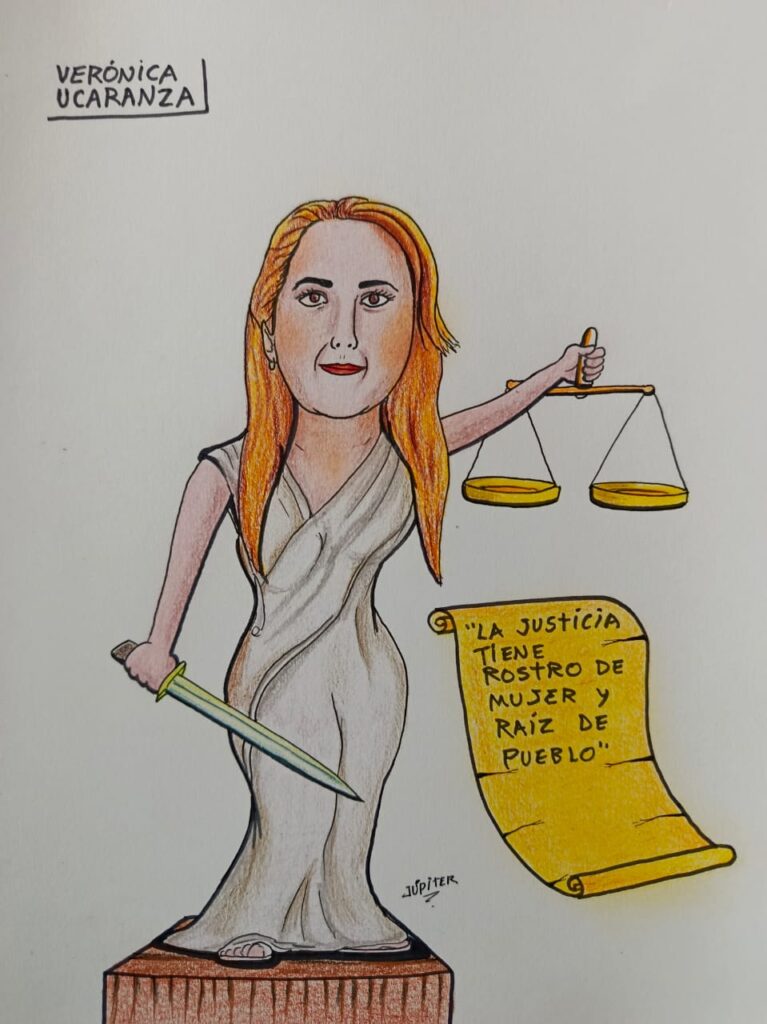 VERÓNICA
UCARANZA
"LA JUSTICIA
TIENE
ROSTRO DE
MUJER Y
RAÍZ DE
PUEBLO"
JÚPITER